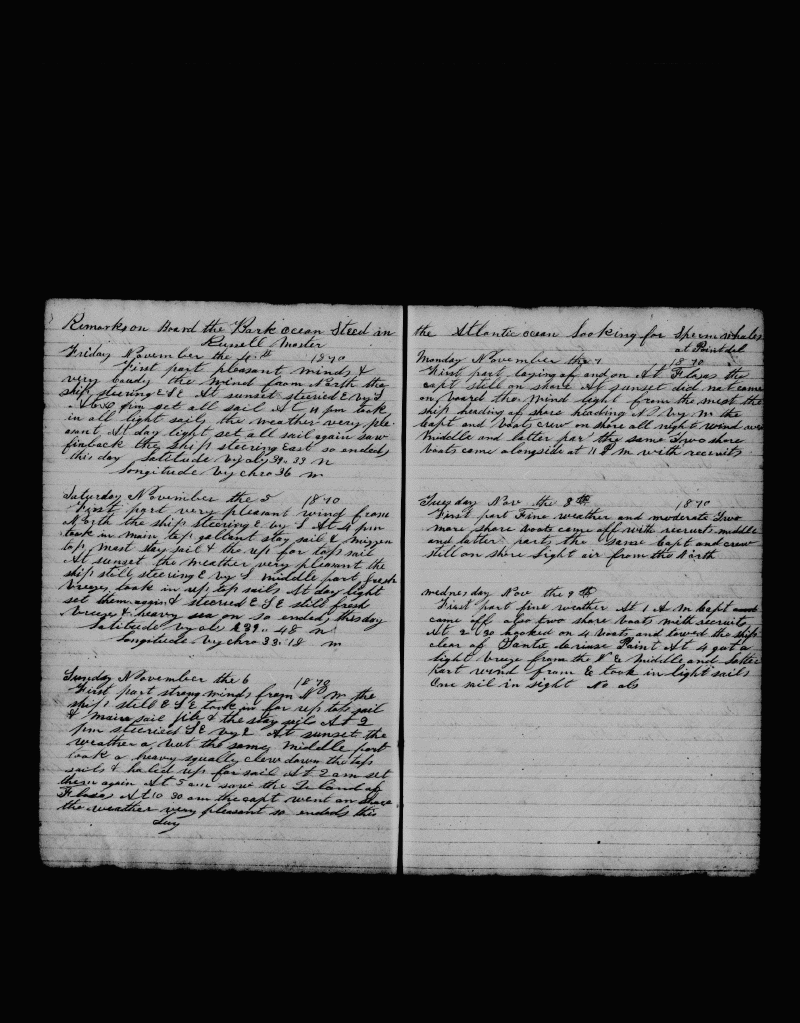 Remarks on Board the Bark ocean Steed in
Rusell Master
Friday November the 4th 1870
First part pleasant winds &
very boudy the wind from North the
ship steering E S E At sunset steeried E by S
At 6 pm set all sail At 11 pm took
in all light sails the weather very ple
asant At day light set all sail again saw
finback the ship steering East so ended
this day Latitude by obs 39.. 33 N
Longitude by chro 36 m
Saturday November the 5 1870
First part very pleasant wind from
North the ship steering E by S At 4 pm
took in main top gallant stay sail & mizzen
top mast stay sail & the up for top sail
At sunset the weather very pleasant the
ship still steering E by S middle part fresh
breeze took in up top sails At day light
set them again & steeried E S E still fresh
breeze & heavy sea on so ended this day
Latitude by obs 39.. 48 N
Longitude by chro 33:18 m
Sunday November the 6 1870
First part strong winds from N W the
ship still E S E took in for up top sail
& main sail jib & the stay sails At 2
pm steeried S E by E At sunset the
weather but the same middle part
took a heavy squally clew down the top
sails & haled up for sail At 2 am set
them again At 5 am saw the Island of
Flores At 10 30 am the capt went on shore
the weather very pleasant so ended this
Day
the Atlantic ocean Looking for Sperm whales
at Point del
Monday November the 7 1870
First part laying of and on At Flores the
capt still on shore At sunset did not come
on board the wind light from the west the
ship heading of shore heading N by W the
Capt and boats crew on shore all night wind
middle and latter par the same Two shore
boats came alongside at 11 P M with recruits
Tuesday Nov the 8th 1870
First part Fine weather and moderate Two
more shore boats came off with recruits middle
and latter part the same Capt and crew
still on shore Light air from the North
Wednesday Nov the 9th
First part fine weather At 1 A M Capt
came off also two shore boats with recruits
At 2 30 hooked on 4 boats and lowed the ship
clear of Santa Point At 4 got a
light breeze from the N E Middle and Latter
Part wind from E took in light sails
One sail in sight No obs